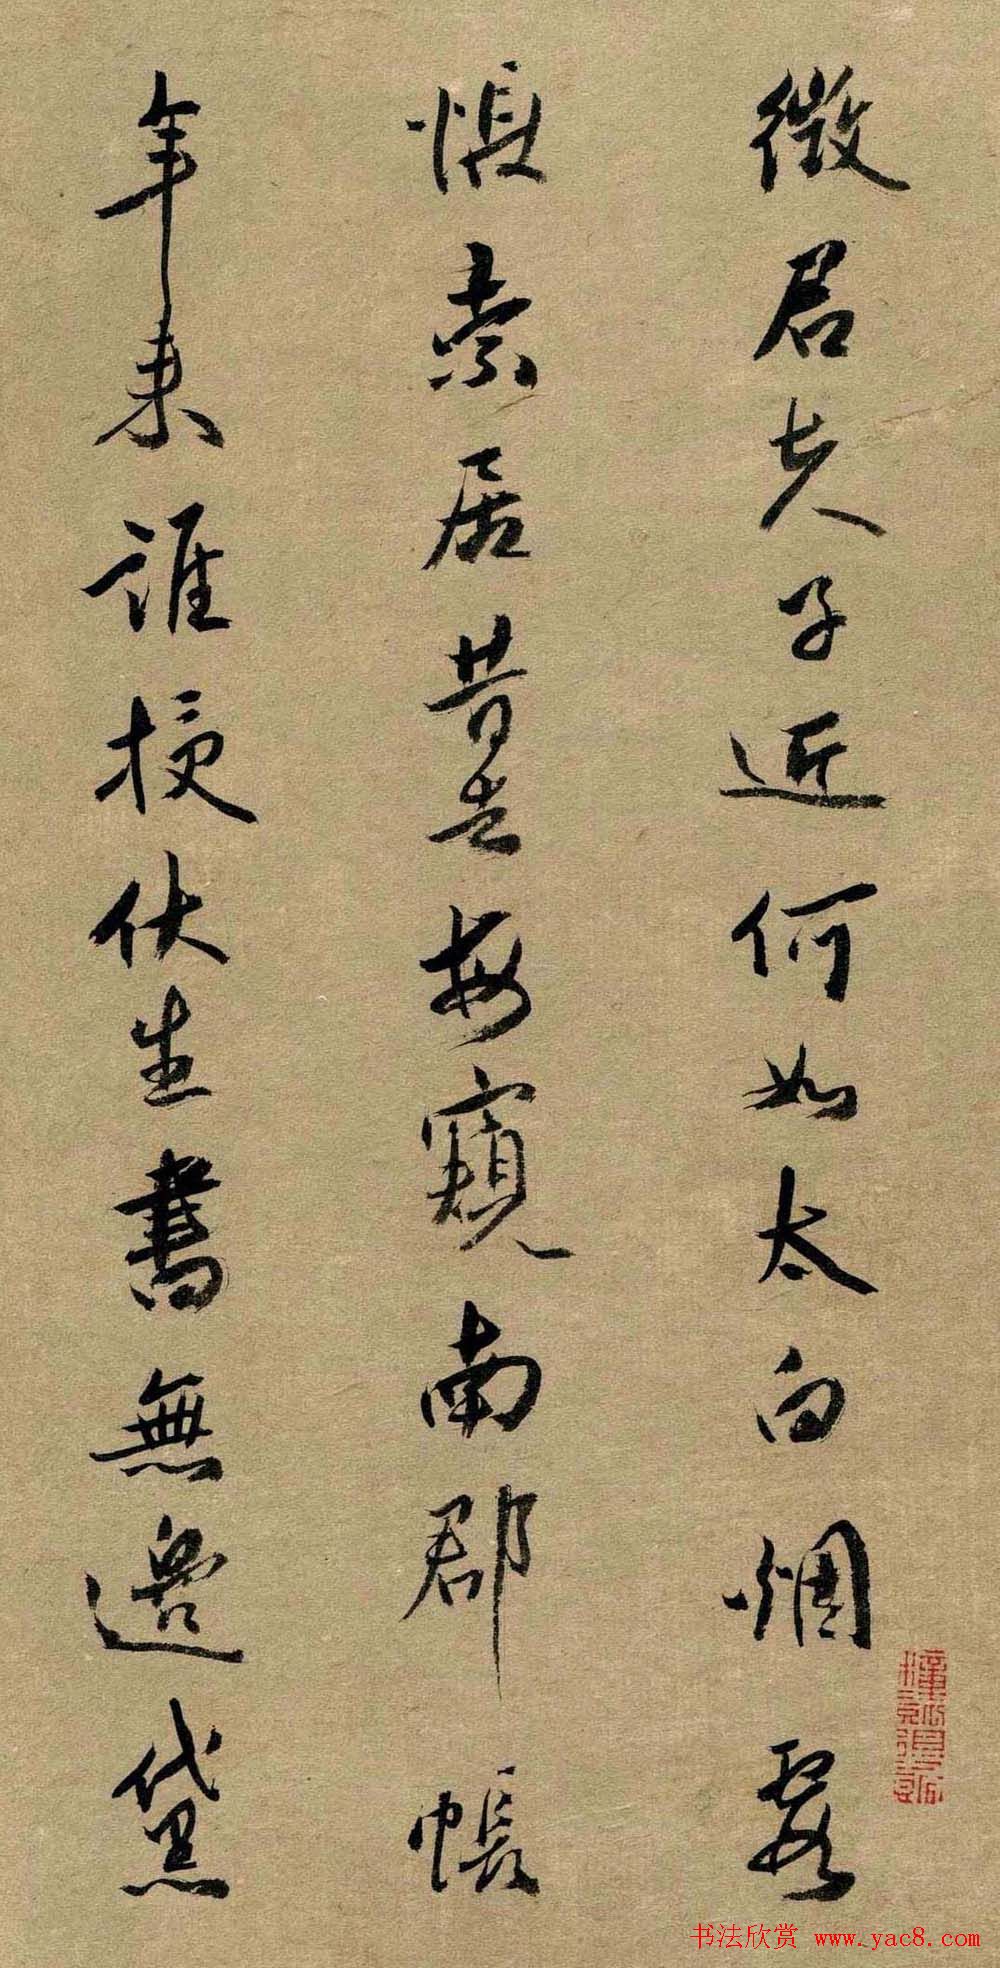 徵君夫子近何如太白烟霞
恨索居昔去每窺南郡帳
年来誰授伏生書無邊黛
书法欣赏 www.yac8.com